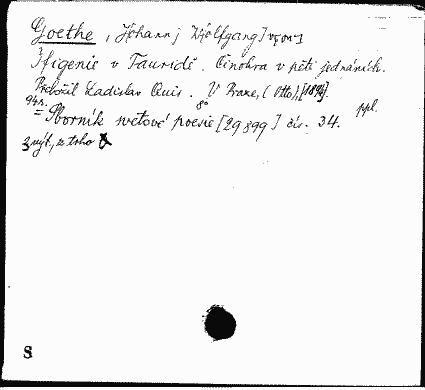 Goethe, [Johann] Wolfgang] von
Ifigenie v Tauridě. Činohra v pěti jednáních.
Přeložil Ladislav Quis. V Praze, (Otto), [189].
94 s. 8° ppl.
= Sborník světové poesie [29899] čís. 34.
3 výt., z toho
S